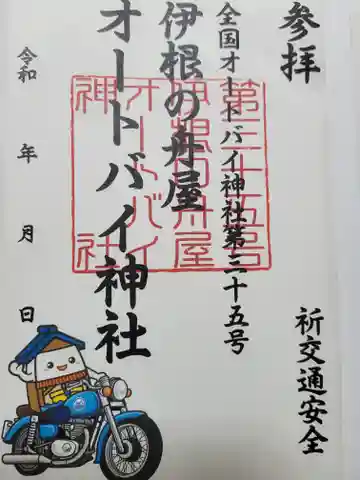 参拝
祈交通安全
全国オートバイ神社第三十五号
伊根の舟屋
オートバイ神社
令和 年 月 日
第三十五号
伊根の舟屋
オートバイ
神社